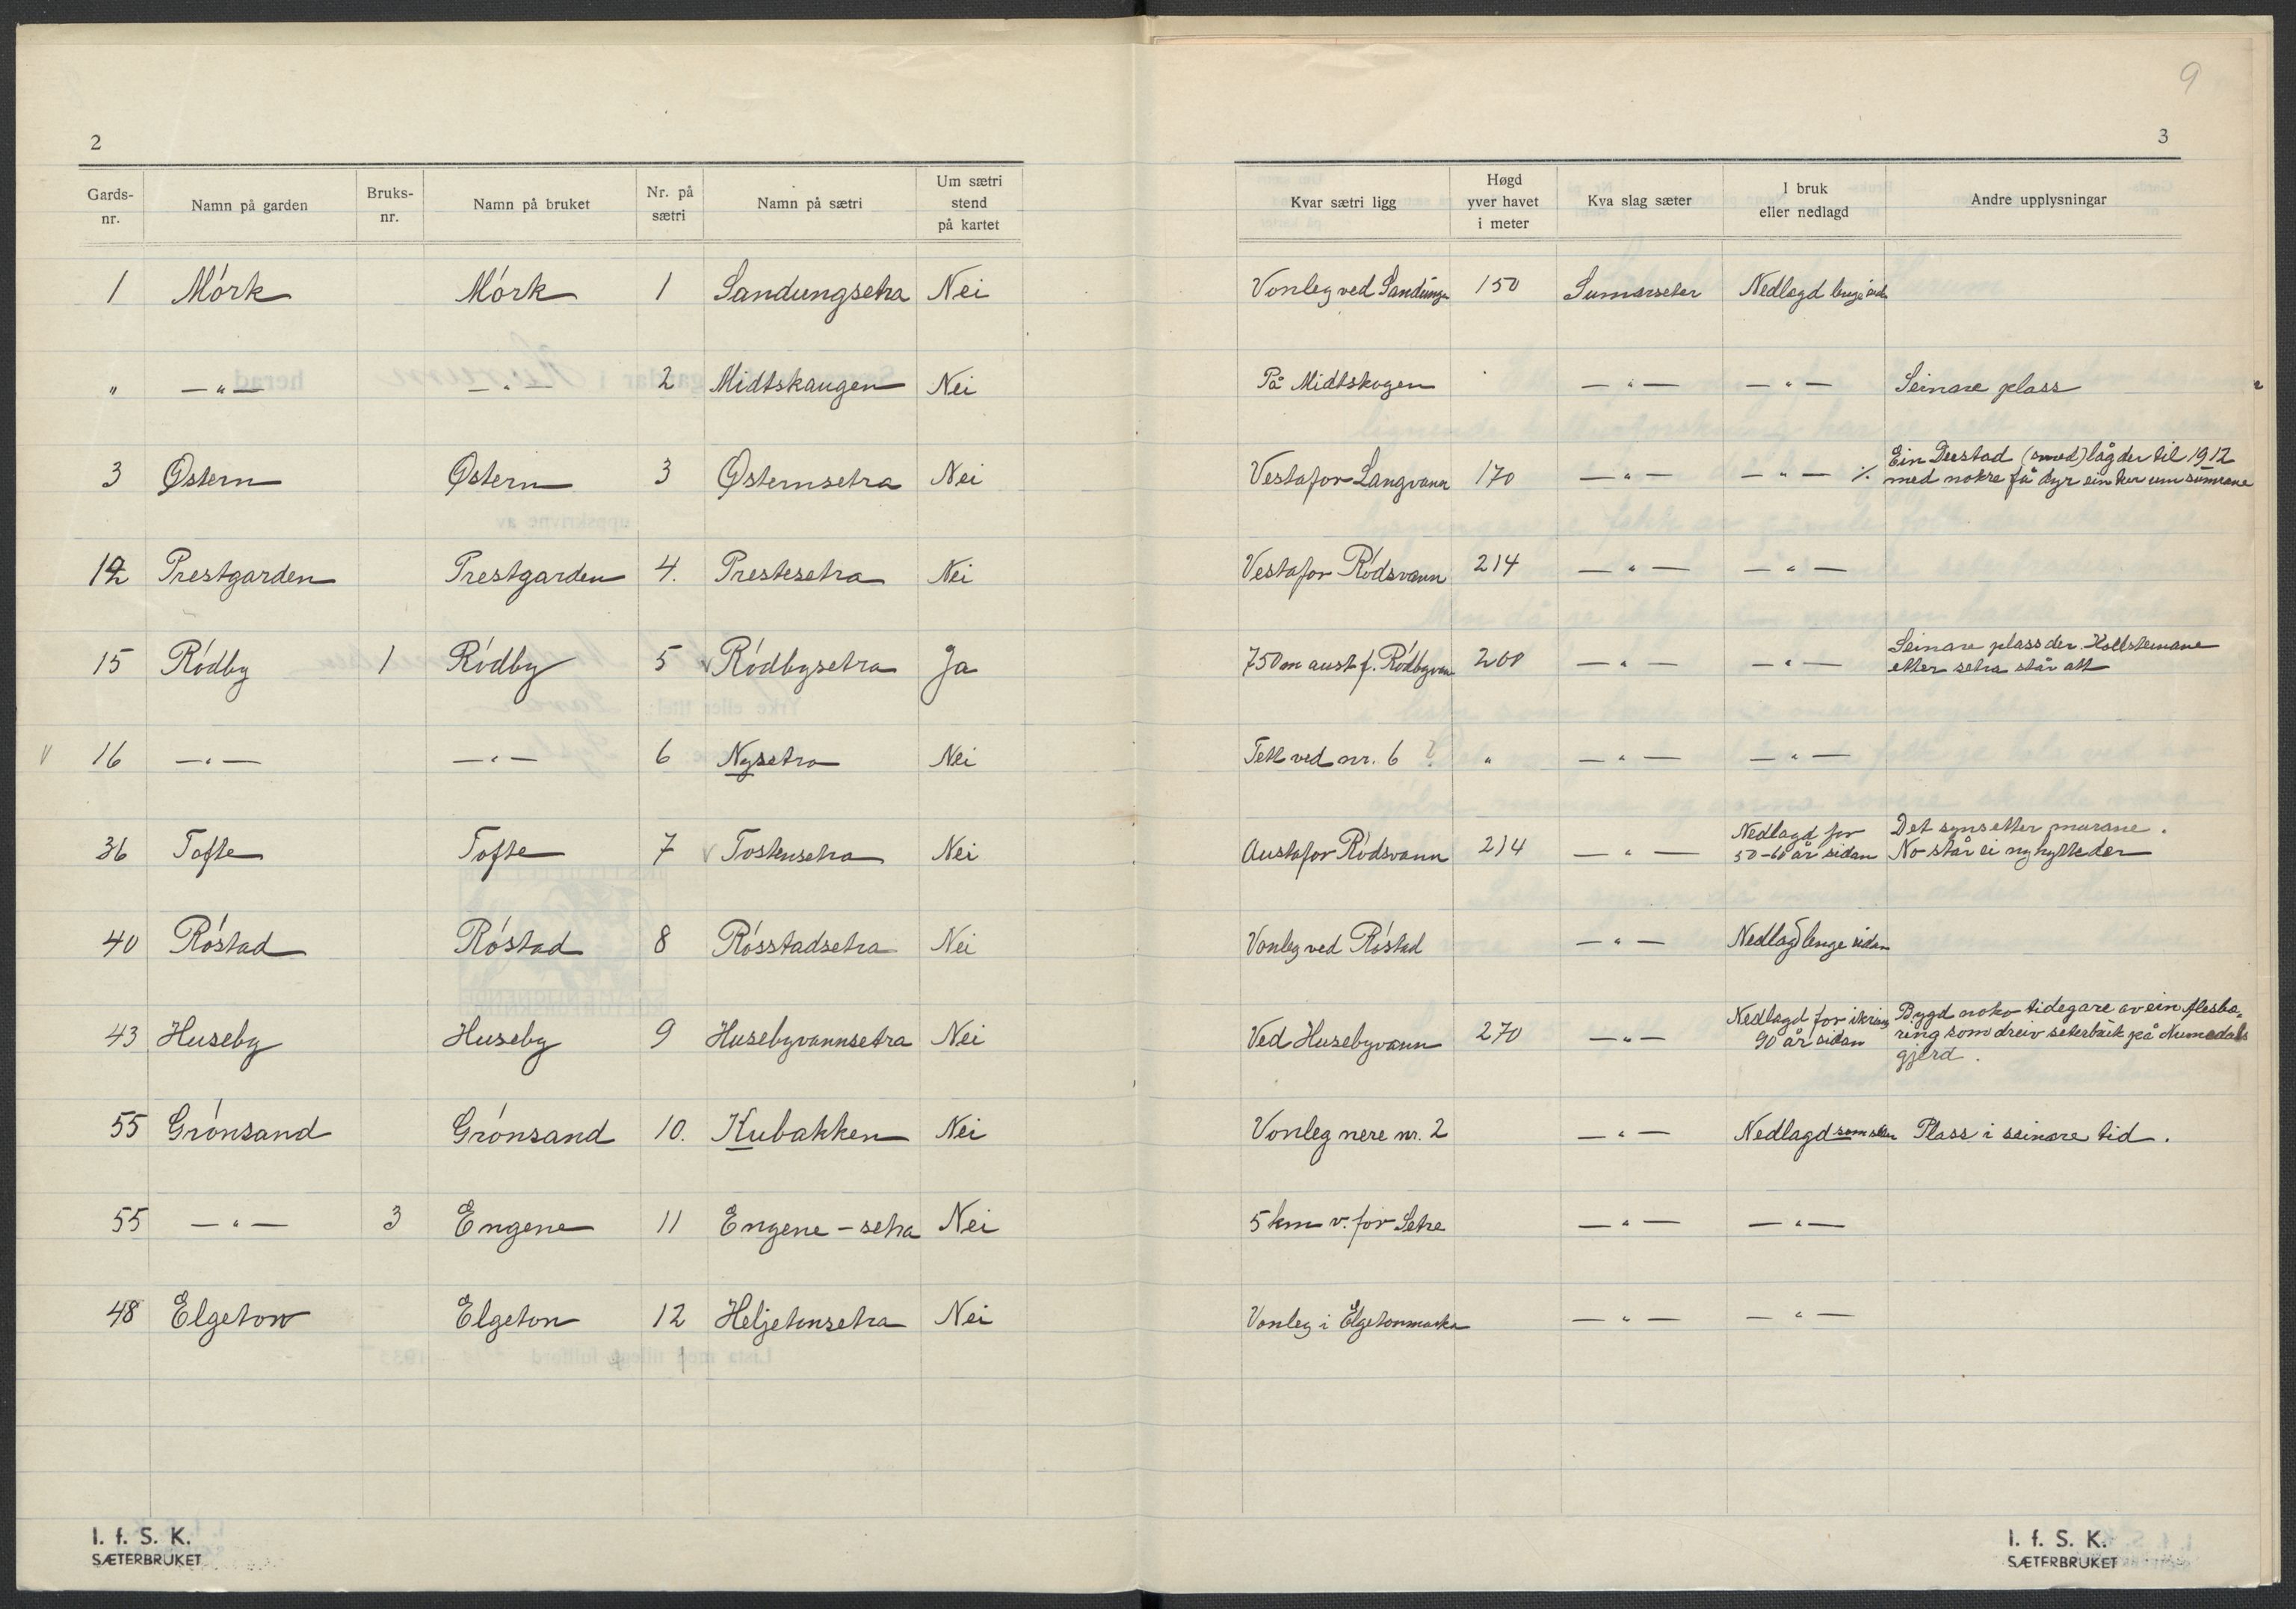 9
2
3
Gards-nr. Namn på garden Bruks-nr. Namn på bruket Nr. på sætri Namn på sætri Um sætri stend på kartet Kvar sætri ligg Høgd yver havet i meter Kva slag sæter I bruk eller nedlagd Andre upplysningar
1 Mórk Mórk 1 Sandungsetra Nei Vonleg ved Sandunga 150 Sumarseter Nedlagd lenge sid
" — " — — " — 2 Midtskaugen Nei På Midtskogen — " — — " — Seinare plass
3 Østern Østern 3 Østernsetra Nei Vestafor Langvann 170 — " — — " — ٪ Ein Deestad (smed) låg der til 1912
med nokre få dyr ein tur um sumrane
12 Prestgarden Prestgarden 4. Prestesetra Nei Vestafor Ródsvann 214 — " — — " —
15 Ródby 1 Ródby 5 v Ródbysetra Ja 750 m aust f. Ródbyvan 200 — " — — " — Seinare plass der. Hellsteinane
etter setra står att
v 16 — " — — " — 6 Nysetra Nei Tett ved nr. 6 ? " — " — — " —
36 Tofte Tofte 7 v Tostensetra Nei Austafor Ródsvann 214 — " — Nedlagd for
50-60 år sidan Det syns etter murane.
No står ei ny hytte der
40 Róstad Róstad 8 Rósstadsetra Nei Vonleg ved Róstad — " — Nedlagd lenge sidan
43 Huseby Huseby 9 Husebyvannsetra Nei Ved Husebyvann 270 — " — Nedlagd for ikring
90 år sidan Bygd noko tidegare av ein flesbe-
ring som dreiv seterbruk på Numedals
gjerd.
55 Grónsand Grónsand 10. Kubakken Nei Vonleg nere nr. 2 — " — Nedlagd som seter Plass i seinare tid.
55 — " — 3 Engene 11 Engene - setra Nei 5 km v. for Setre — " — — " —
48 Elgeton Elgeton 12 Heljetonsetra Nei Vonleg i Elgetonmarka — " — — " —
I. f. S. K.
SÆTERBRUKET
I. f. S. K.
SÆTERBRUKET